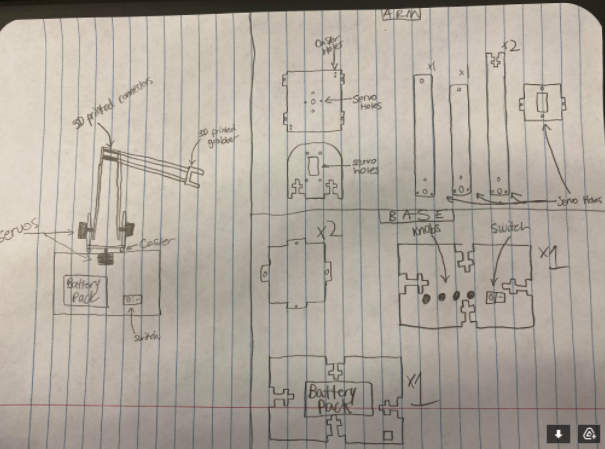 ARM
3D printed connectors
3D printed grabber
Servos
Caster
Battery
Pack
Switch
Caster
Holes
Servo
Holes
Servo
holes
x1
x1
x2
Servo Holes
BASE
x2
Knobs
Switch
x1
Battery
Pack
x1